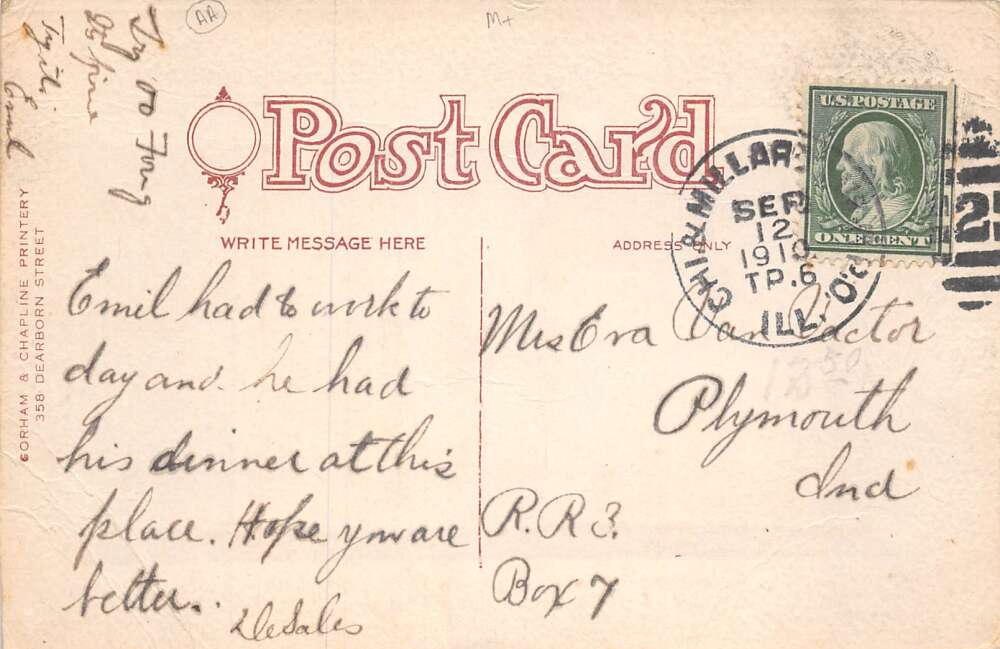 AA
M+
Post Card
WRITE MESSAGE HERE
ADDRESS ONLY
U.S. POSTAGE
ONE CENT
CHI. & MILLARD
SEP
12
1910
TR. 6
ILL.
R.P.O.
Emil had to work to
day and he had
his dinner at this
place. Hope you are
better.
DeSales
Mrs Eva Van Vactor
Plymouth
Ind
R.R 3.
Box 7
1250
Its fine
Try it.
Emil
GORHAM & CHAPLINE PRINTERY
358 DEARBORN STREET